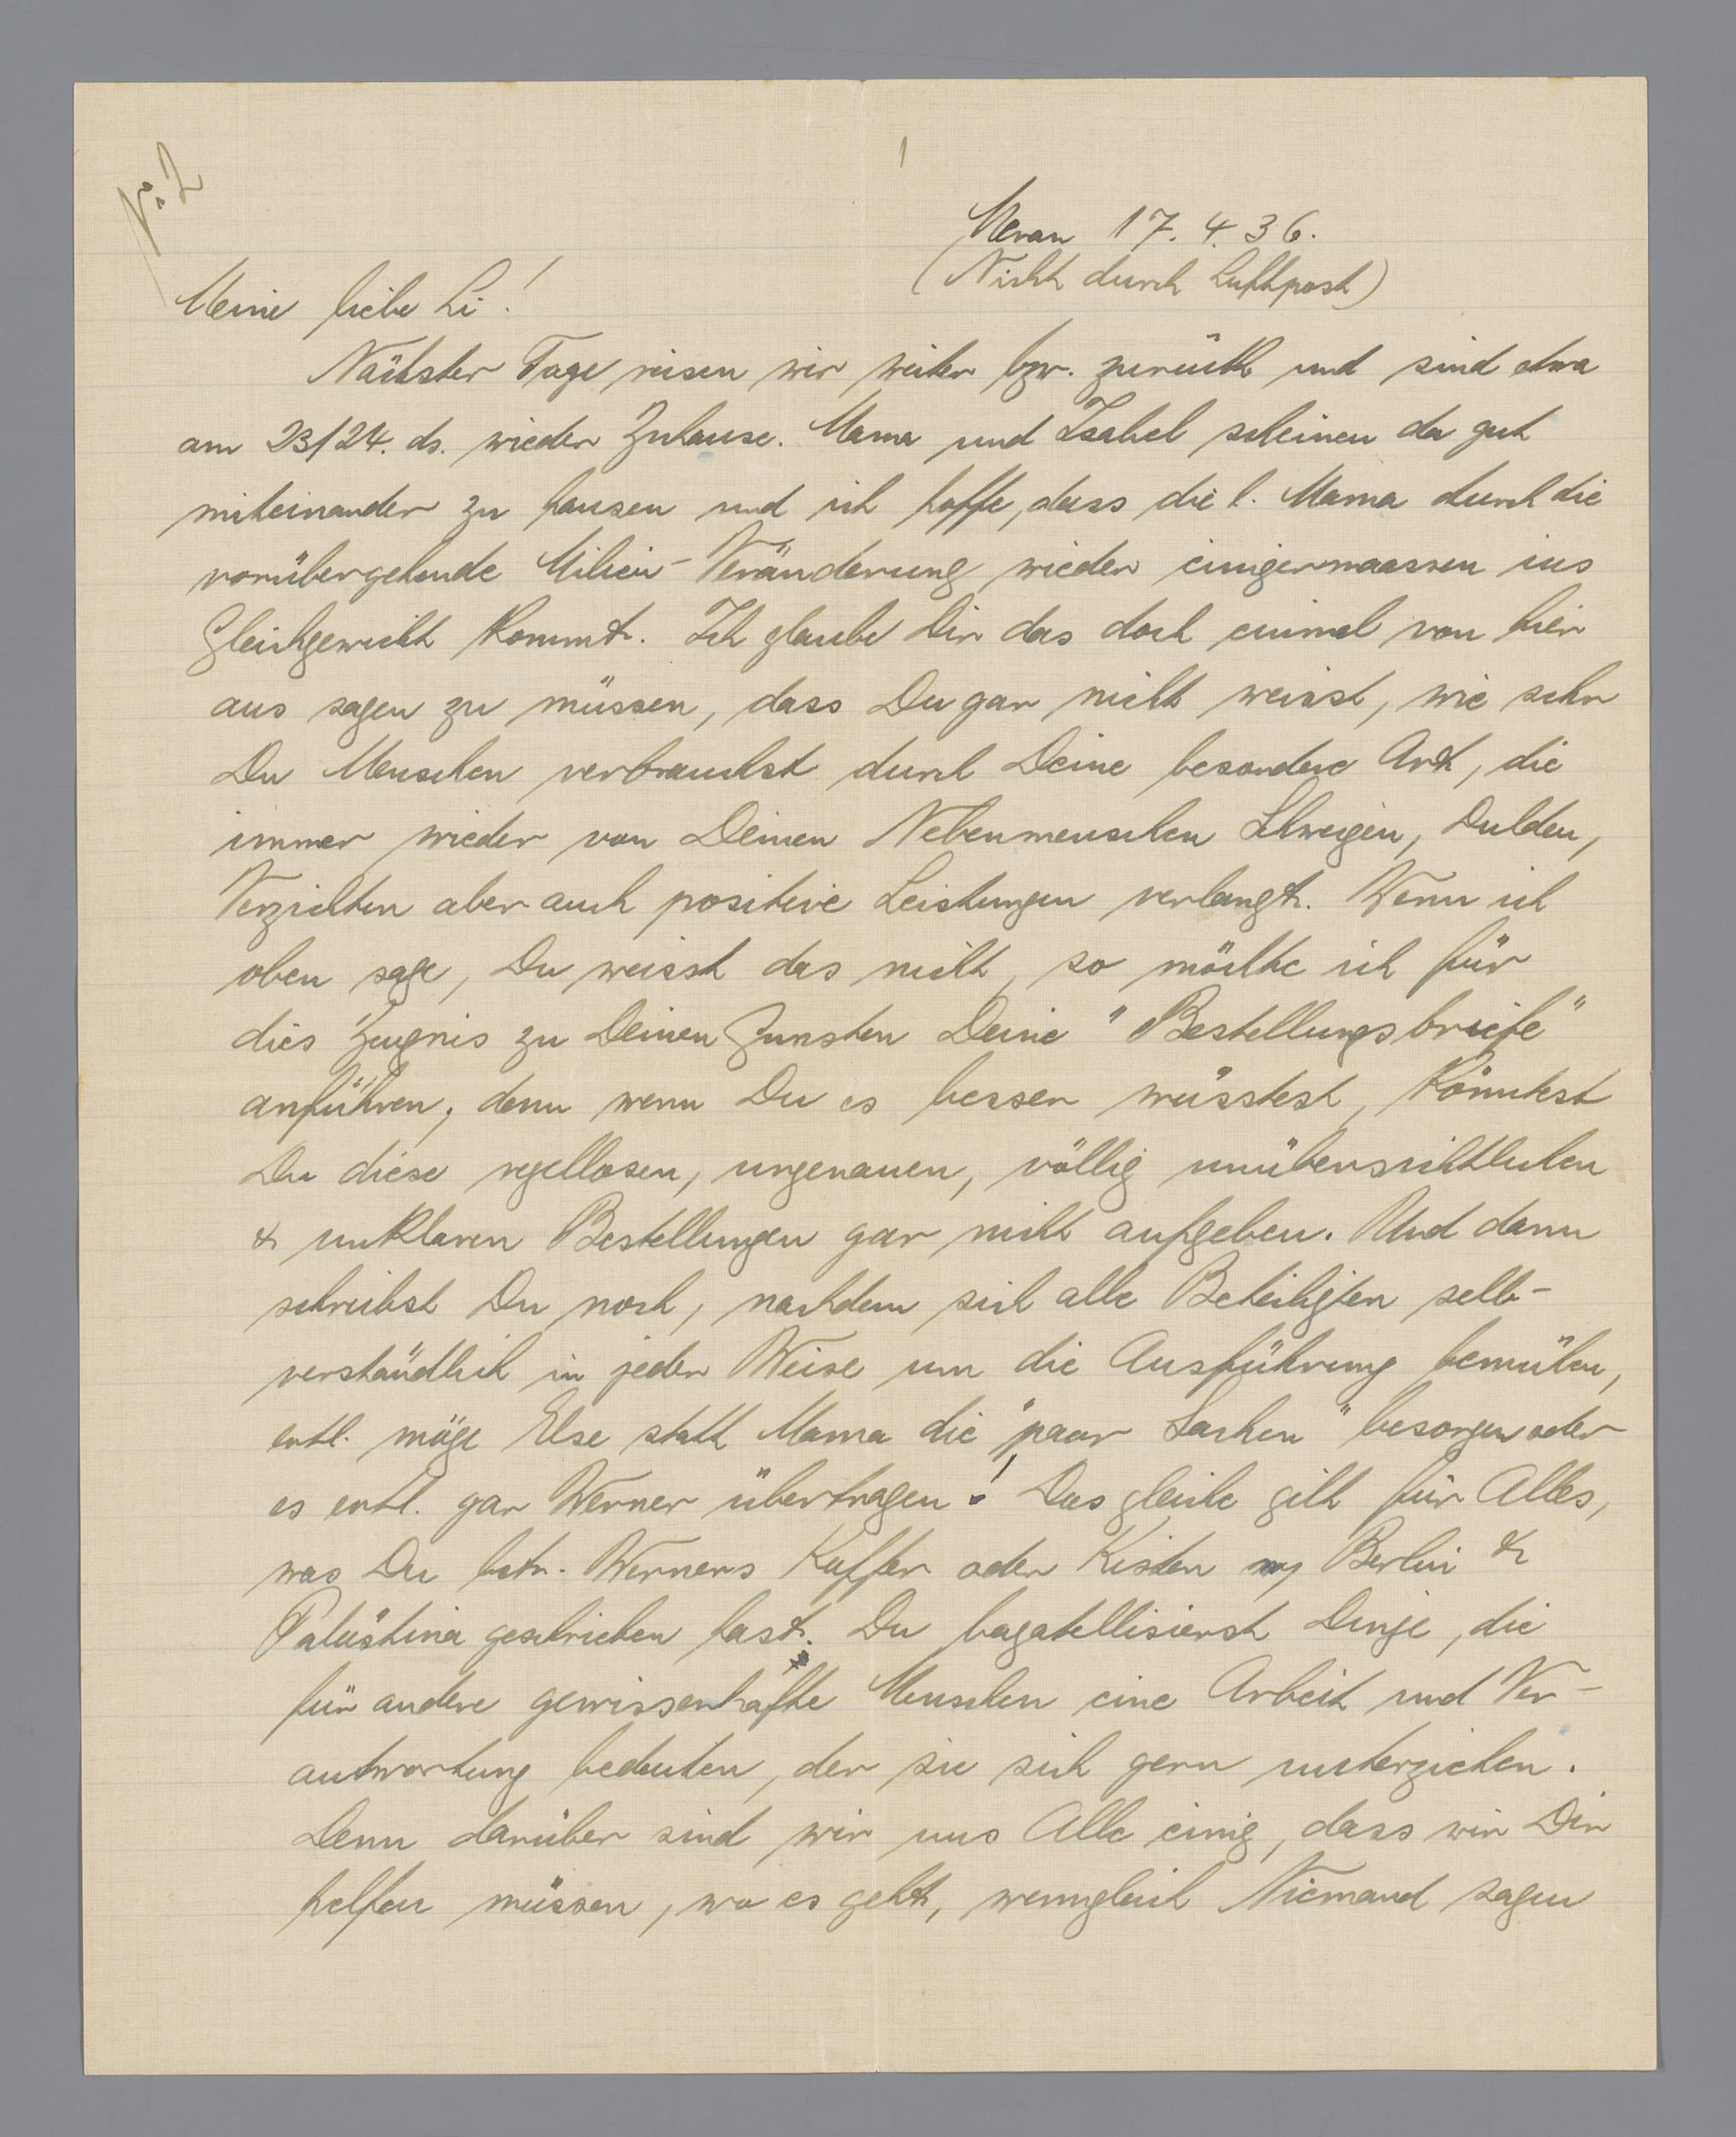 Meran 17.4.36.
(Nicht durch Luftpost)
Meine liebe Li!
Nächster Tage reisen wir weiter bzw. zurück und sind etwa
am 23/24. ds. wieder Zuhause. Mama und Isabel scheinen da gut
miteinander zu hausen und ich hoffe, dass die l. Mama durch die
vorübergehende Milieu-Veränderung wieder einigermaassen ins
Gleichgewicht kommt. Ich glaube Dir das doch einmal von hier
aus sagen zu müssen, dass Du gar nicht weisst, wie sehr
Du Menschen verbrauchst durch Deine besondere Art, die
immer wieder von Deinen Nebenmenschen Schweigen, Dulden,
Verzichten aber auch positive Leistungen verlangt. Wenn ich
oben sage, Du weisst das nicht, so möchte ich für
dies Zeugnis zu Deinen Gunsten Deine "Bestellungsbriefe"
anführen; denn wenn Du es besser wüsstest, könntest
Du diese regellosen, ungenauen, völlig unübersichtlichen
& unklaren Bestellungen gar nicht aufgeben. Und dann
schreibst Du noch, nachdem sich alle Beteiligten selb-
verständlich in jeder Weise um die Ausführung bemühen,
evtl. möge Else statt Mama die "paar Sachen" besorgen oder
es evtl. gar Werner übertragen! Das gleiche gilt für Alles,
was Du betr. Werners Koffer oder Kisten Berlin &
Palästina geschrieben hast. Du bagatellisierst Dinge, die
für andere gewissenhafte Menschen eine Arbeit und Ver-
antwortung bedeuten, der sie sich gern unterziehen.
Denn darüber sind wir uns Alle einig, dass wir Dir
helfen müssen, wo es geht, wenngleich Niemand sagen